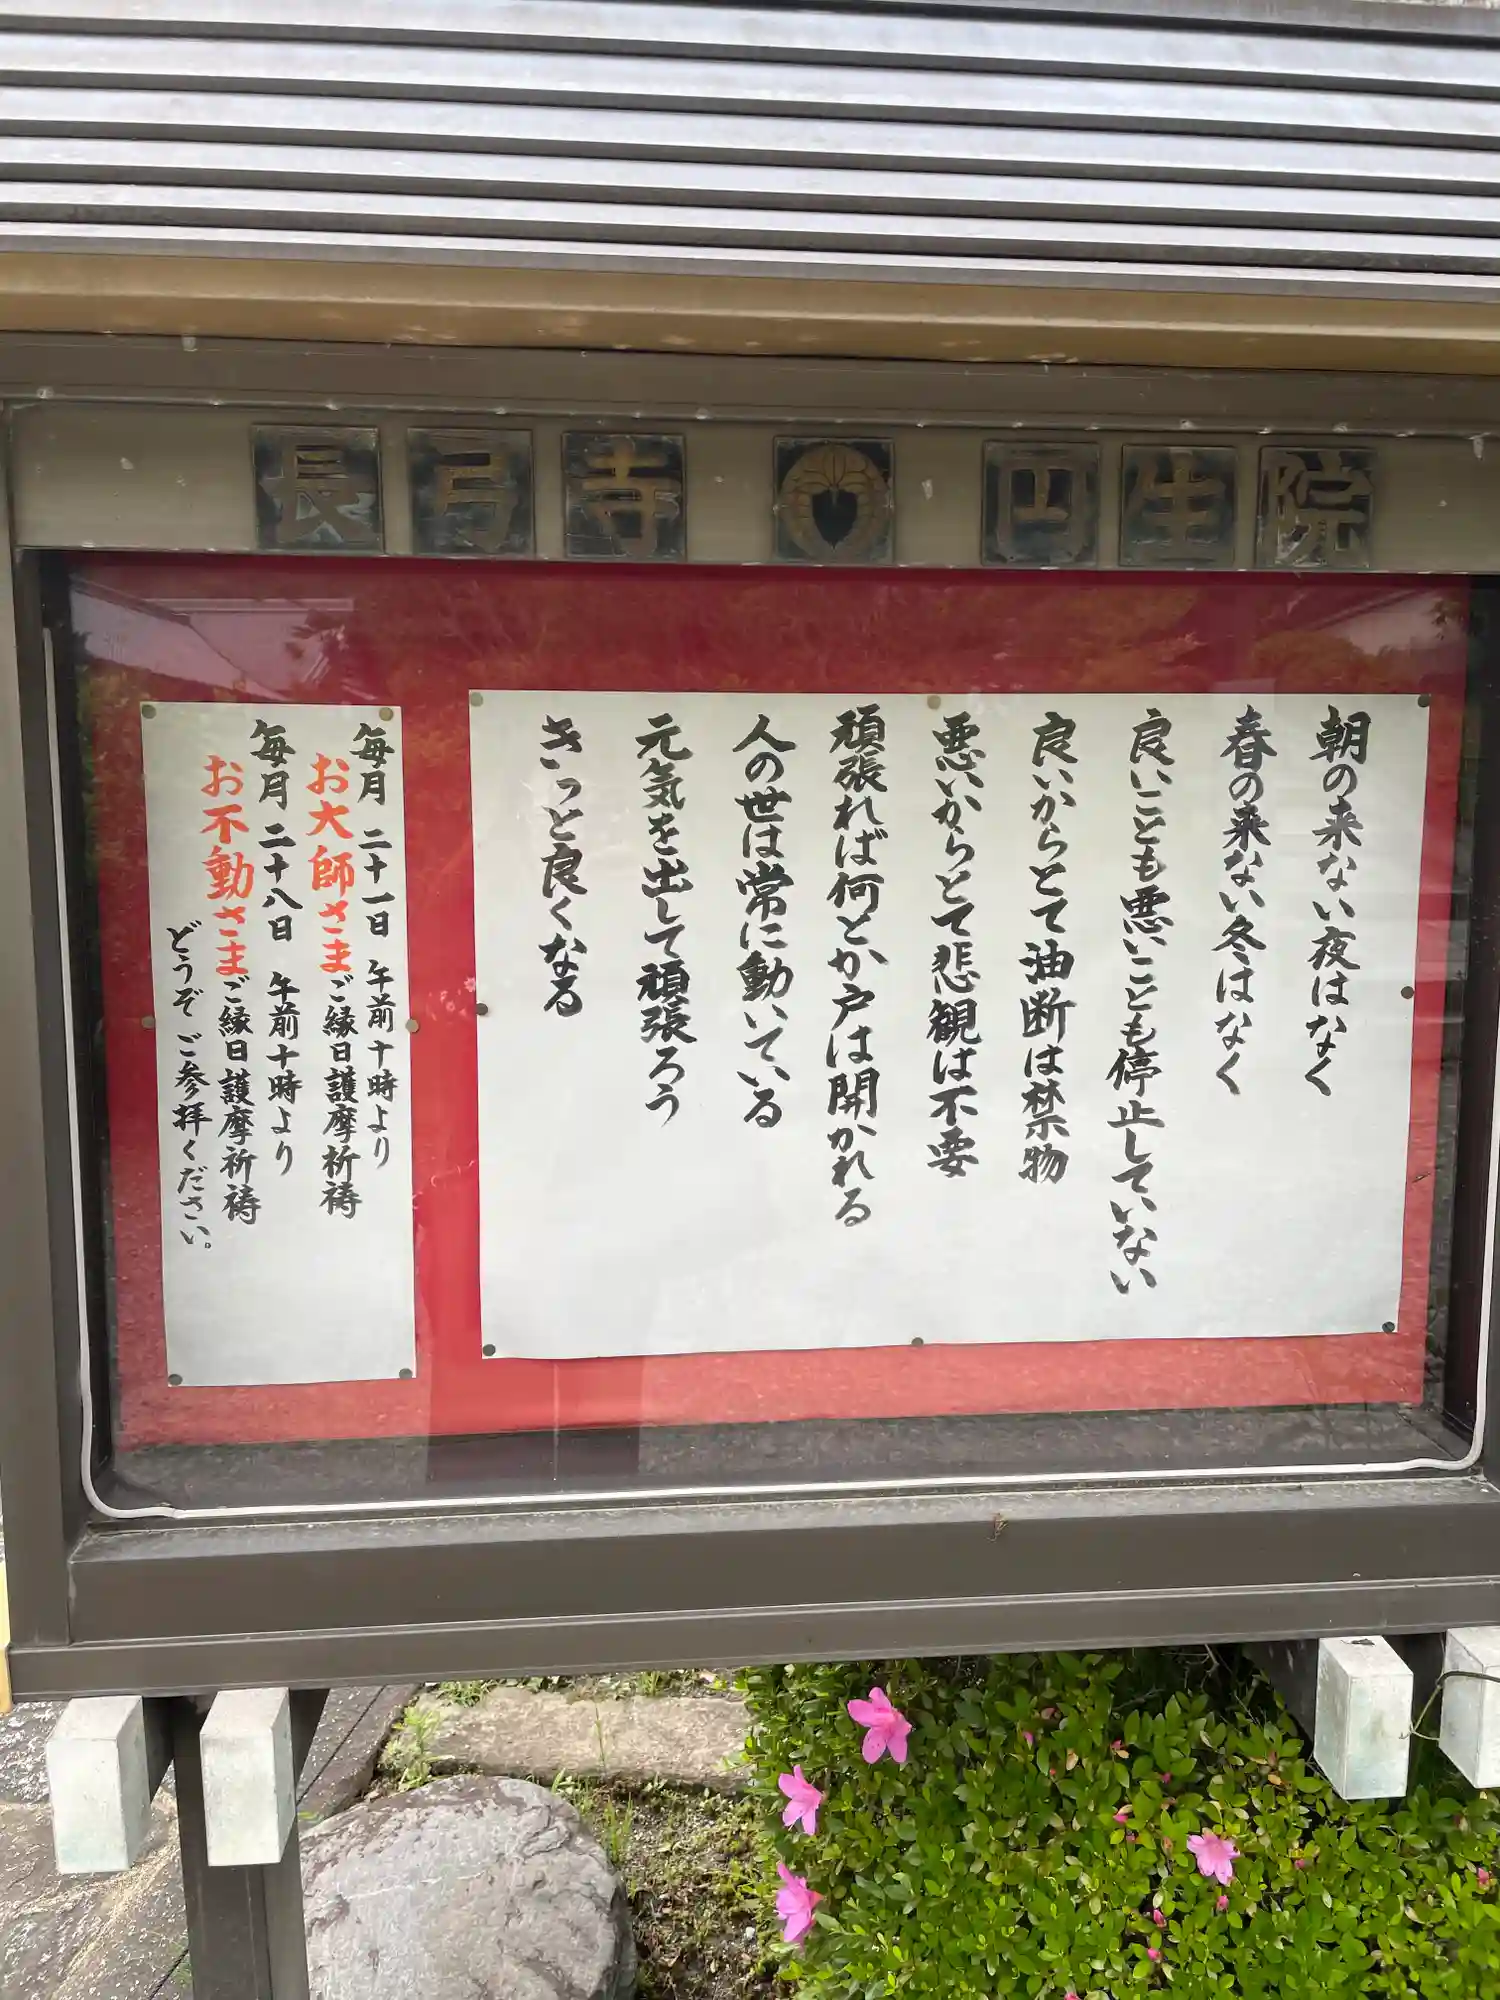 長弓寺 円生院
朝の来ない夜はなく
春の来ない冬はなく
良いことも悪いことも停止していない
良いからとて油断は禁物
悪いからとて悲観は不要
頑張れば何とか戸は開かれる
人の世は常に動いている
元気を出して頑張ろう
きっと良くなる
毎月二十一日 午前十時より
お大師さまご縁日護摩祈祷
毎月二十八日 午前十時より
お不動さまご縁日護摩祈祷
どうぞご参拝ください。